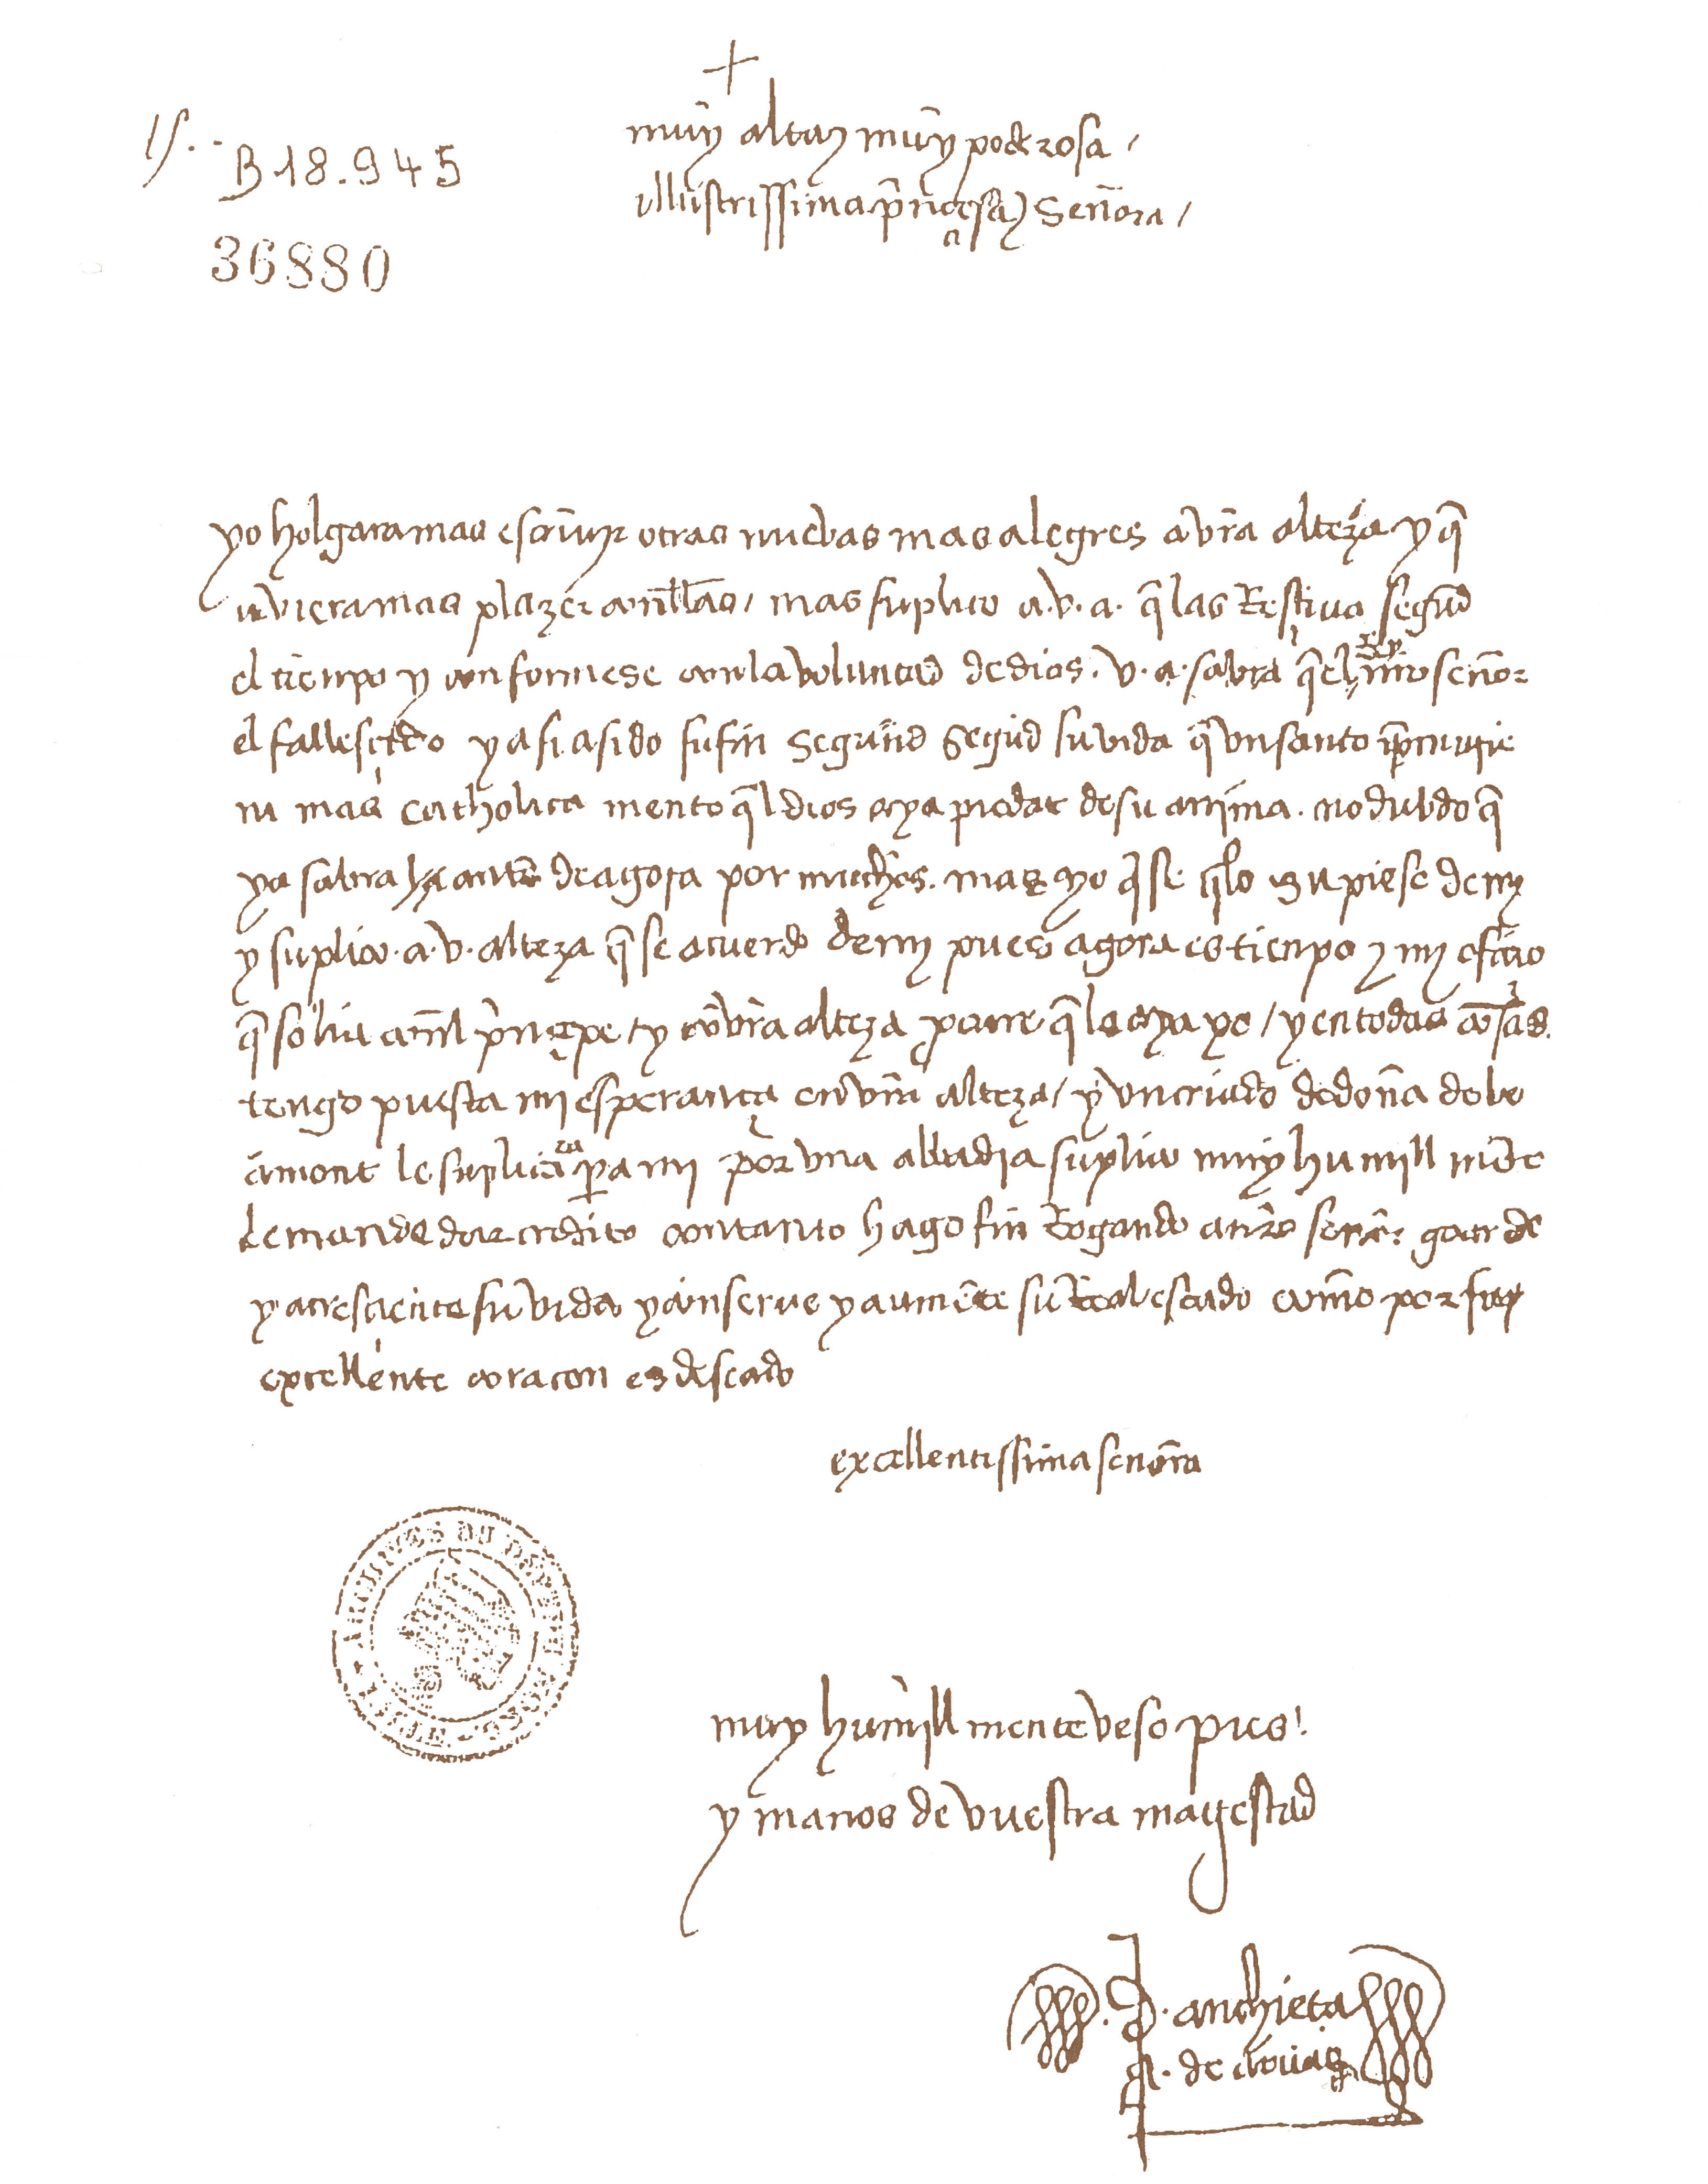 +
muy alta y muy poderosa /
illustrissima prinçesa y Señora /
B 18.945
36880
yo holgara mas escriuyr otras nuebas mas alegres a vra alteza y q̃
uviera mas plazer con ellas / mas suplico a. v. a. q̃ las Resçiua segũd
el tienpo y conformese con la voluntad de dios. v. a. sabra q̃ el rey nr̃o señor
el fallescido y asi a sido su fin segund segũd su vida q̃ un santo
ni mas catholica mente q̃l dios aya piedat de su anima. no dubdo q̃
ya sabra antes de agora por muchos. mas yo q̃se q̃ lo supiese de my
y suplico. a. v. alteza q̃ se acuerde de my pues agora es tienpo y my ofiçio
q̃ solia con el prinçepe y cõ vrã alteza pareçe q̃ le aya yo / y en todas cosas
tengo puesta mi esperança en vrã alteza / y un criado de doña de be
amont le suplicara pa mi por una abbadia suplico muy humill mẽte
le mande dar credito con tanto hago fin Rogando a nrõ señor guarde
y acresciente su vida y conserve y aumẽte su Real estado como por su
excellente coraçon es deseado
excellentissima señora
muy humill mente veso pies
y manos de vuestra magestad
anchieta